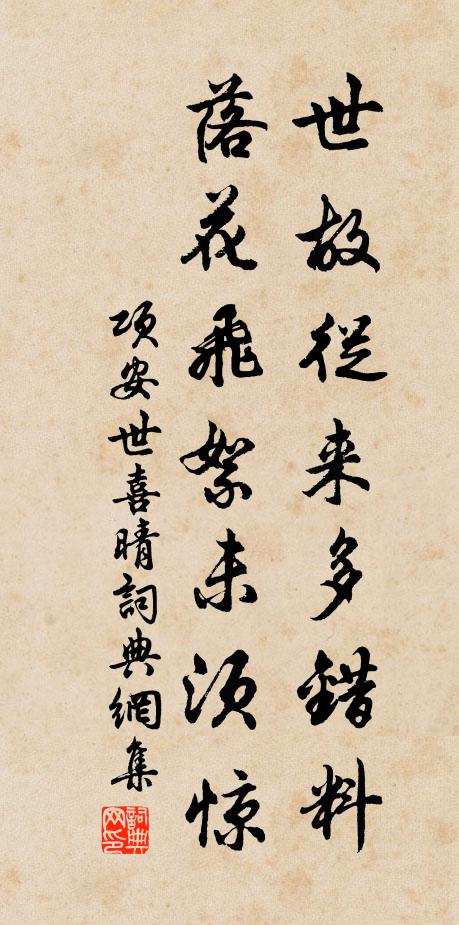 世故從来多錯料
落花飛絮未須惊
项安世喜晴詞典網集
詞典网印